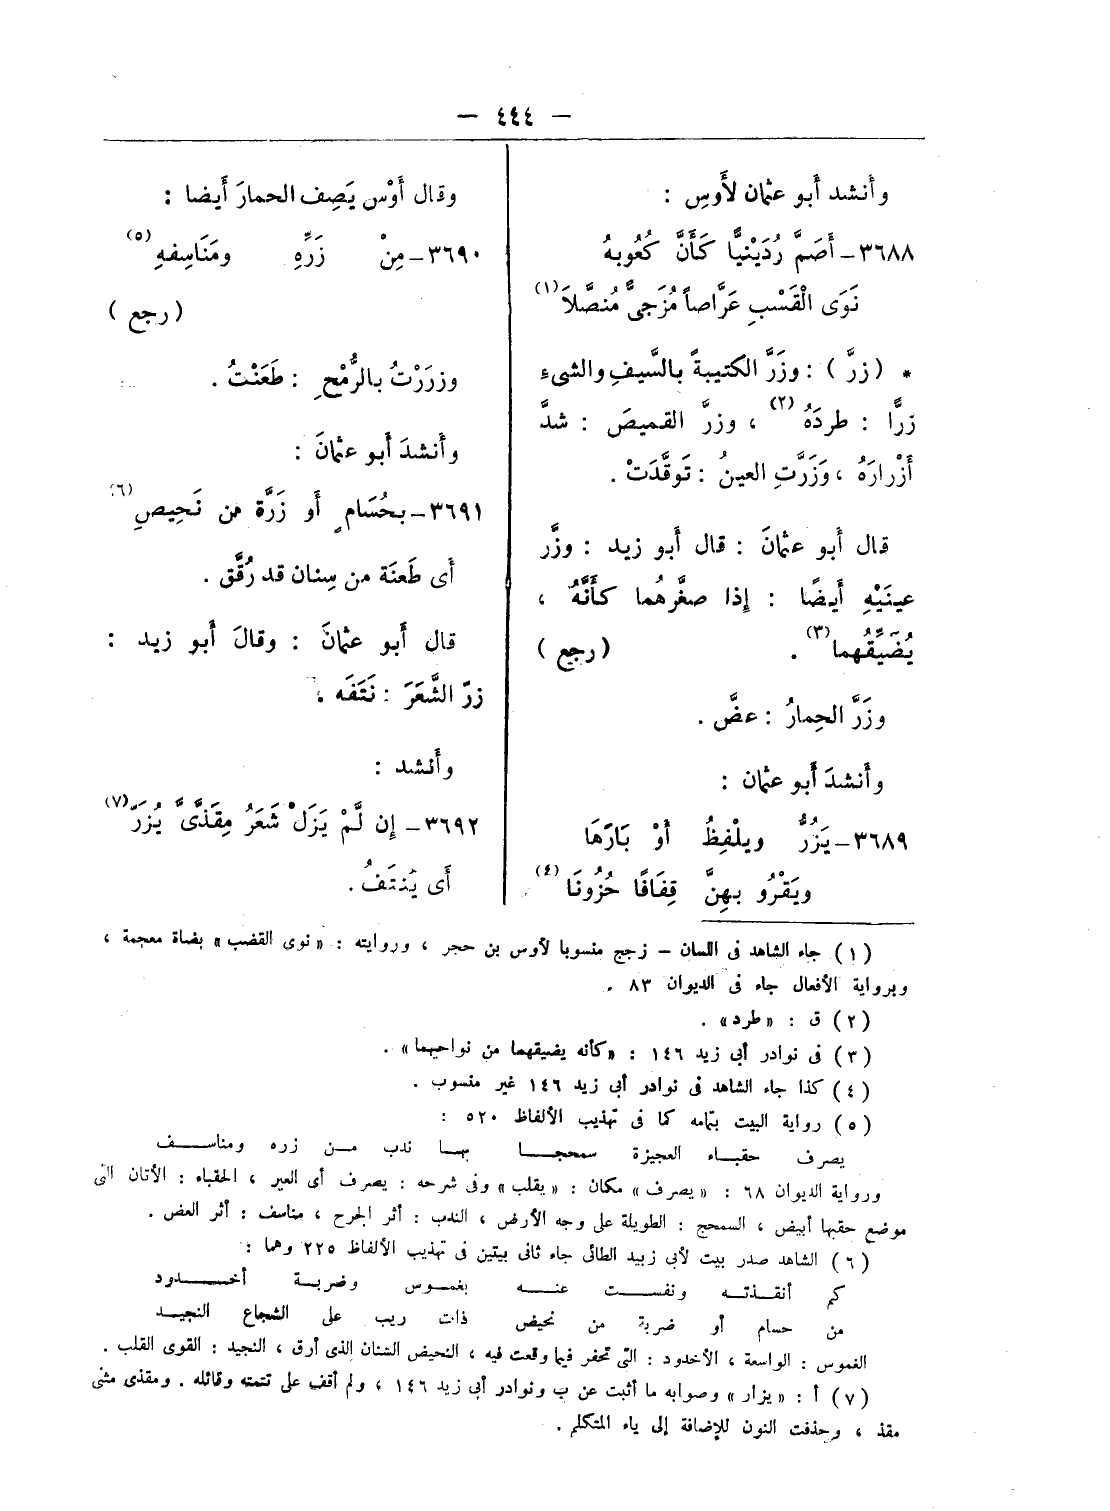 — ٤٤٤ —
وأنشد أبو عثمان لأَوسِ :
٣٦٨٨ــ أَصَمَّ رُدَيْنيًّا كَأَنَّ كُعُوبهُ
نَوَى الْقَسْبِ عَرَّاصاً مُزَجىًّ مُنصَّلاَ (١)
* (زرَّ) : وزَرَّ الكتيبةَ بالسَّيفِ والشىءَ
زرًّا : طردَهُ (٢) ، وزرَّ القميصَ : شدَّ
أَزْرارَهُ ، وَزَرَّتِ العينُ : تَوقَّدَتْ .
قال أبو عثمانَ : قال أبو زيد : وزَّر
عينَيْهِ أَيضًا : إذا صغَّرهُما كأَنَّهُ ،
يُضَيِّقُهما (٣) . (رجع)
وزَرَّ الحِمارُ : عضَّ .
وأَنشدَ أَبو عثمان :
٣٦٨٩ــ يَزُرُّ ويلْفِظُ أَوْ بَارَهَا
ويَقْرُو بهِنَّ قِفَافًا حُزُونَا (٤)
وقال أَوْس يَصِف الحمارَ أَيضا :
٣٦٩٠ــ مِنْ زَرِّهِ ومَنَاسِفهِ (٥)
(رجع)
وزرَرْتُ بالرُّمْحِ : طَعَنْتُ .
وأَنشدَ أَبو عثمانَ :
٣٦٩١ــ بحُسَامٍ أَو زَرَّة من نَحِيصِ (٦)
أى طَعنَة من سِنان قد رُقِّق .
قال أَبو عثمانَ : وقالَ أَبو زيد :
زرّ الشَّعَرَ : نَتَفَه ،
وأَنشد :
٣٦٩٢ــ إن لَّمْ يَزَلْ شَعَرُ مِقَذَّىَّ يُزَرّ (٧)
أَى يُنتَفُ .
(١) جاء الشاهد فى اللسان – زجج منسوبا لأوس بن حجر ، وروايته : «نوى القضب» بضاة معجمة ،
وبرواية الأفعال جاء فى الديوان ٨٣ .
(٢) ق : «طرد» .
(٣) فى نوادر أبى زيد ١٤٦ : «كأنه يضيقهما من نواحيهما» .
(٤) كذا جاء الشاهد فى نوادر أبى زيد ١٤٦ غير منسوب .
(٥) رواية البيت بتمامه كما فى تهذيب الألفاظ ٥٢٠ :
يصرف حقباء العجيزة سمحجا بها ندب من زره ومناسف
ورواية الديوان ٦٨ : «يصرف» مكان : «يقلب» وفى شرحه : يصرف أى العير ، الحقباء : الأتان التى
موضع حقبها أبيض ، السمحج : الطويلة على وجه الأرض ، الندب : أثر الجرح ، مناسف : أثر العض .
(٦) الشاهد صدر بيت لأبى زبيد الطائى جاء ثانى بيتين فى تهذيب الألفاظ ٢٢٥ وهما :
كم أنقذته ونفست عنه بغموس وضربة أخدود
من حسام أو ضربة من نحيض ذات ريب على الشجاع النجيد
الغموس : الواسعة ، الأخدود : التى تحفر فيما وقعت فيه ، النحيض الشنان الذى أرق ، النجيد : القوى القلب .
(٧) أ : «يزار» وصوابه ما أثبت عن ب ونوادر أبى زيد ١٤٦ ، ولم أقف على تتمته وقائله . ومقذى مثنى
مقذ ، وحذفت النون للإضافة إلى ياء المتكلم .